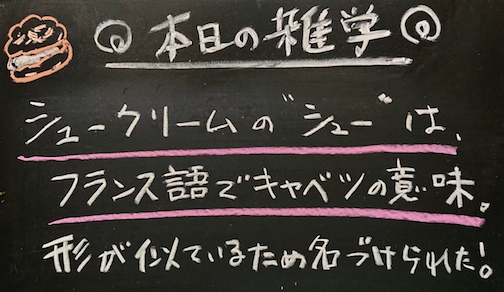 本日の雑学
シュークリームの"シュー"は、
フランス語でキャベツの意味。
形が似ているため名づけられた!